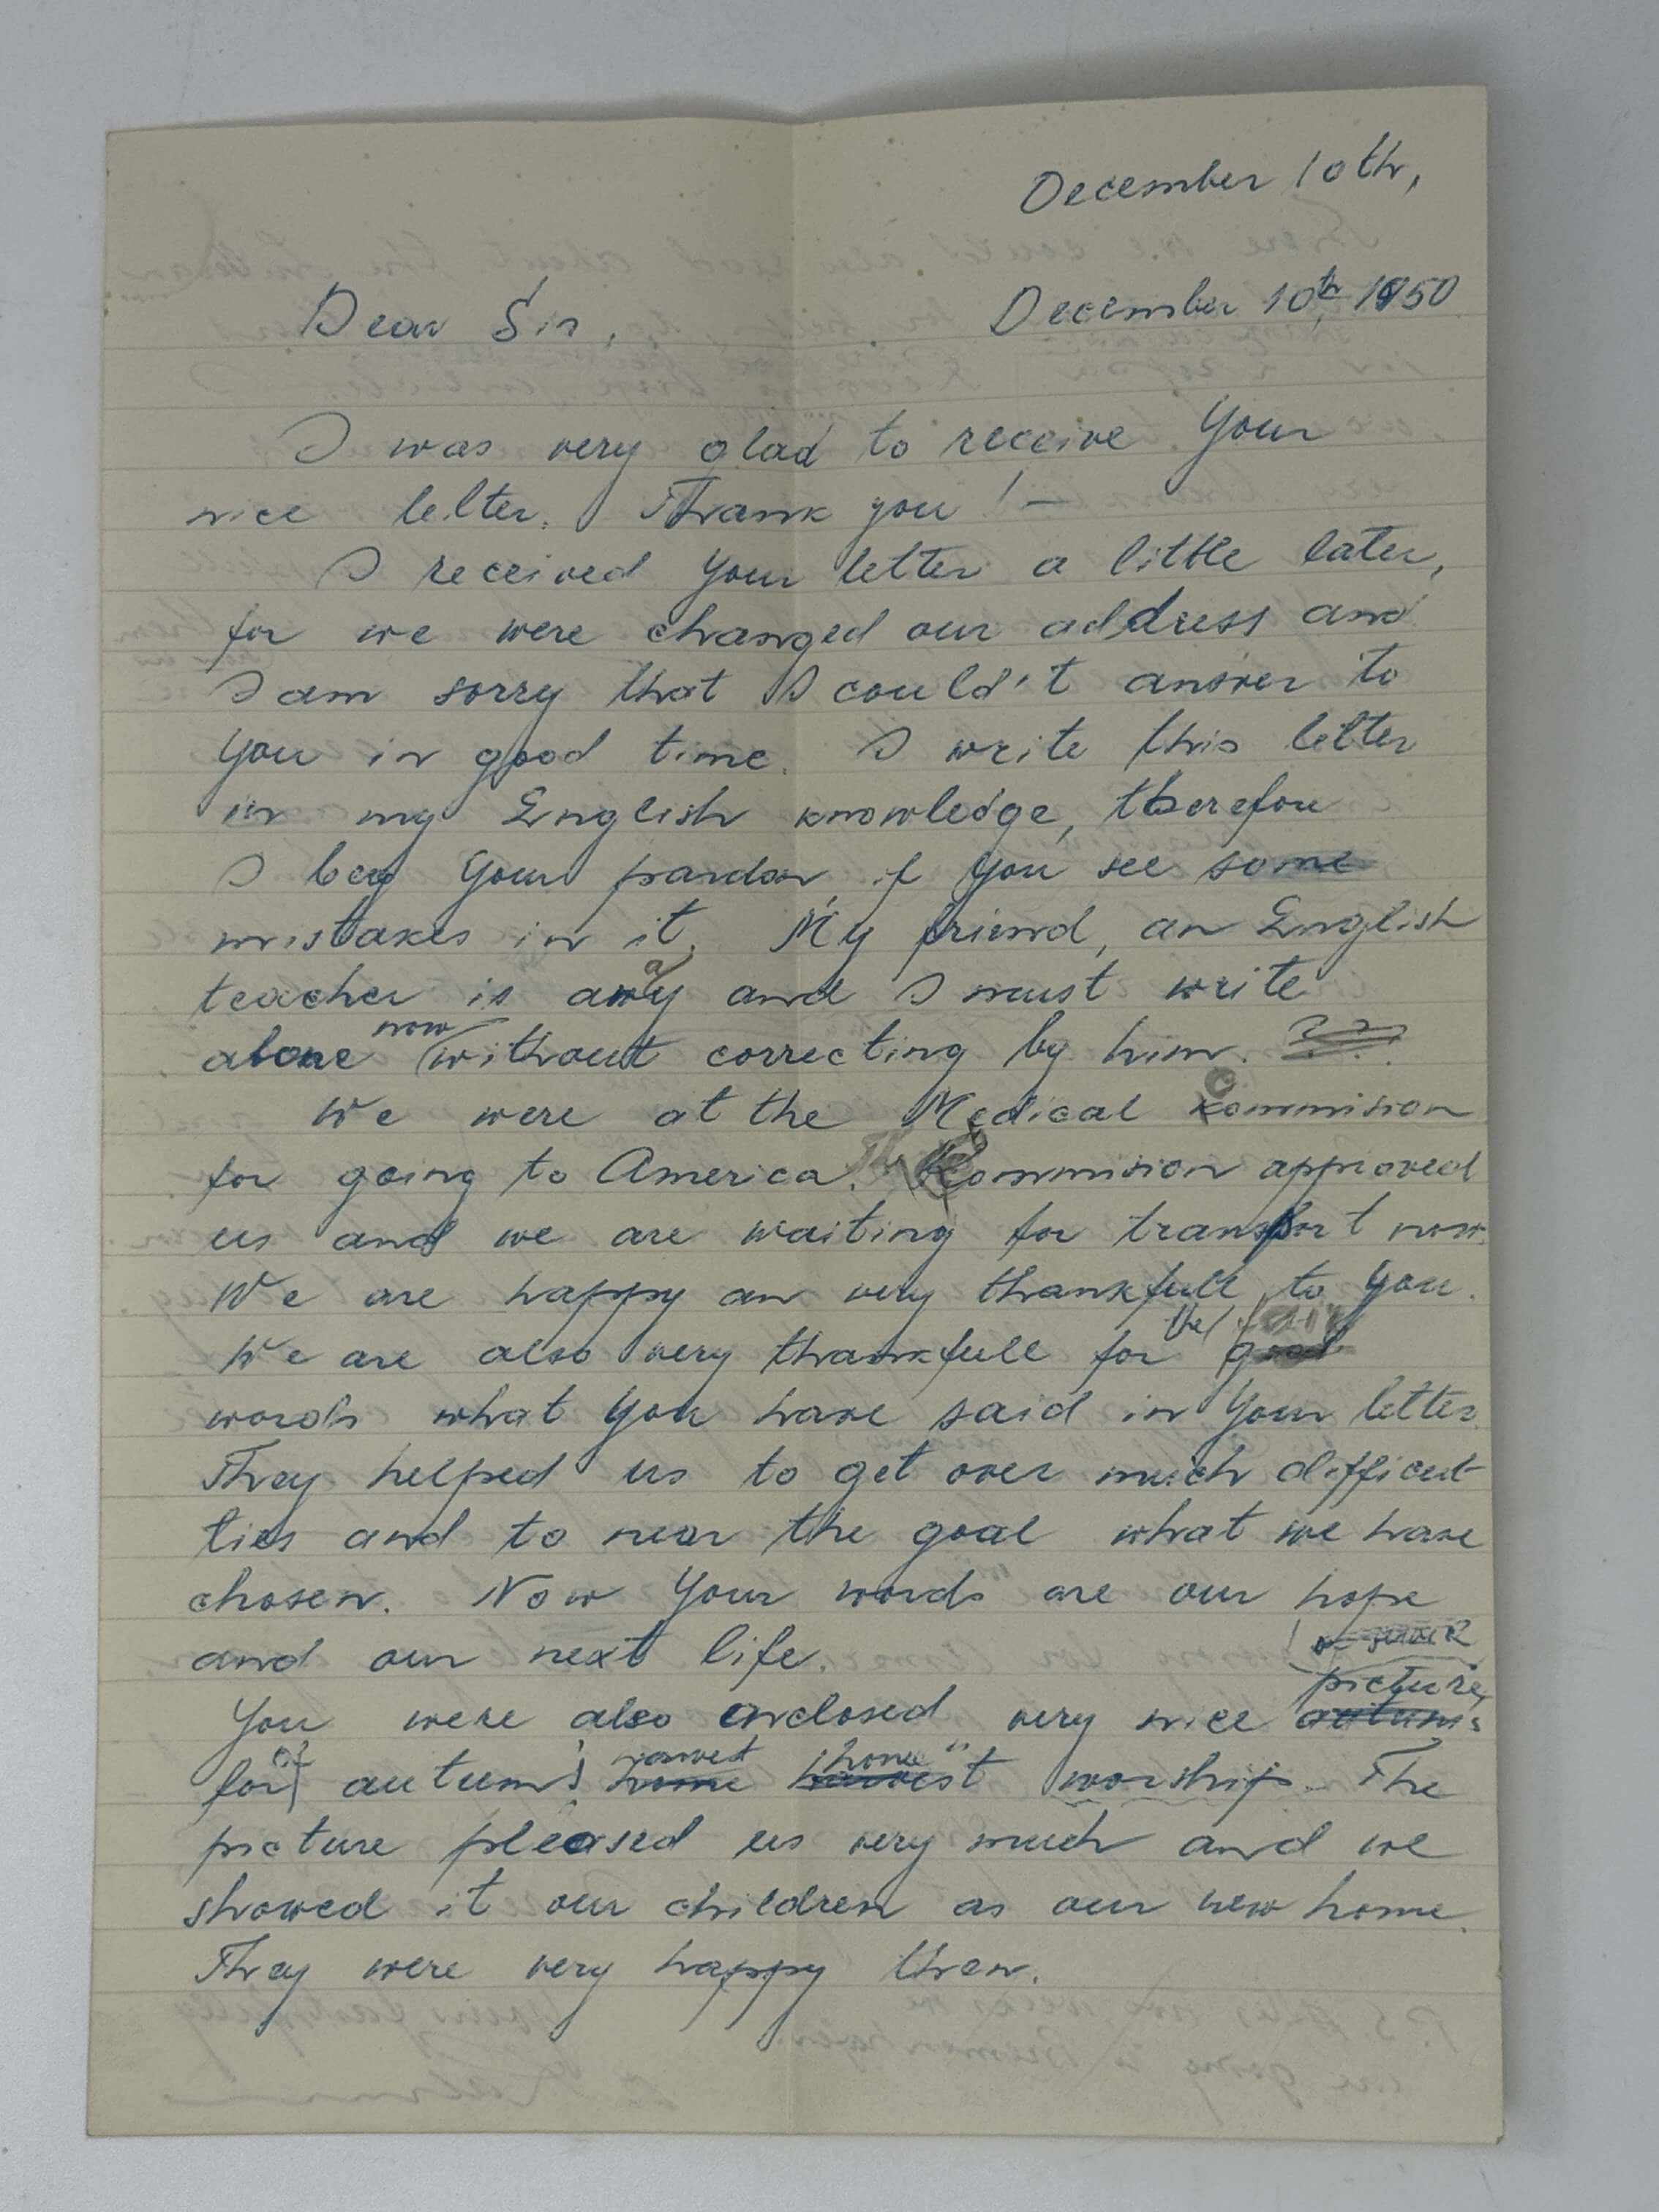 December 10th,
Dear Sir, December 10th, 1950
I was very glad to receive Your
nice letter. Thank you! –
I received your letter a little later,
for we were changed our address and
I am sorry that I could't answer to
you in good time. I write this letter
in my English knowledge, therefore
I beg Your pardon, if you see some
mistakes in it. My friend, an English
teacher is away and I must write
alone now without correcting by him.
We were at the Medical Commision
for going to America. The Commision approved
us and we are waiting for transport now.
We are happy an very thankfull to you.
We are also very thankfull for the good
words what you have said in Your letter.
They helped us to get over much difficul-
ties and to near the goal what we have
chosen. Now Your words are our hope
and our next life.
picture
You were also enclosed very nice autum's
for of autum's harvest home worship. The
picture pleased us very much and we
showed it our children as our new home.
They were very happy then.